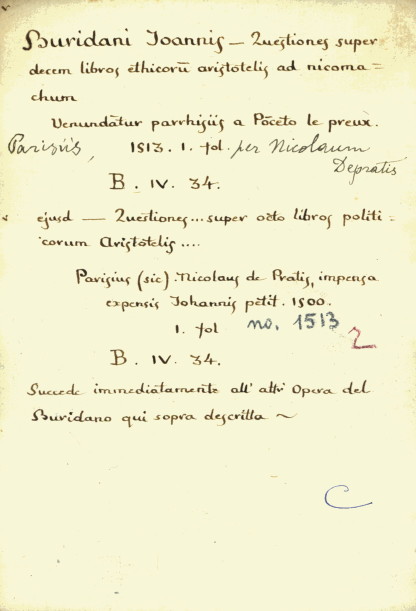 Buridani Joannis — Questiones super
decem libros ethicorū aristotelis ad nicoma=
chum
Venundātur parrhisiis a Pōceto le preux.
Parisiis, 1513. 1. fol. per Nicolaum
Depratis
B. IV. 34.
ejusd — Questiones... super octo libros politi-
corum Aristotelis....
Parisius (sic). Nicolaus de Pratis, impensa
expensis Johannis petit. 1500.
1. fol no. 1513
2
B. IV. 34.
Succede immediatamente all' altr' Opera del
Buridano qui sopra descritta ~
C